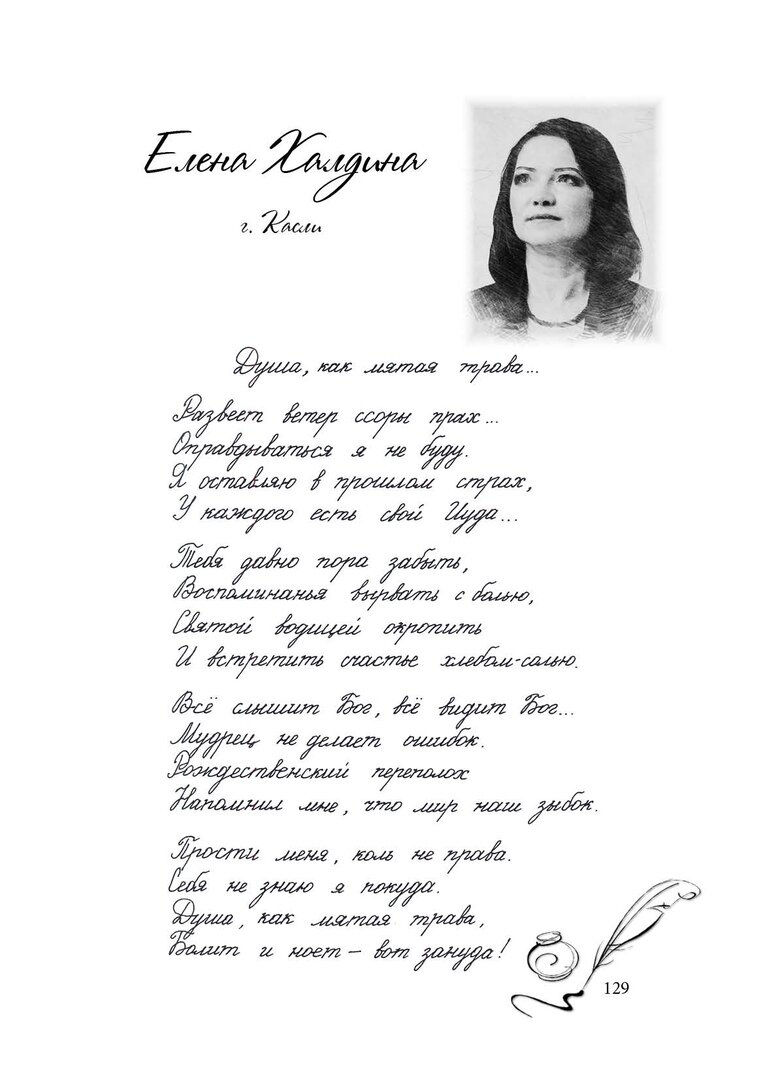 Елена Халдина
г. Касли
Душа, как мятая трава...
Развеет ветер ссоры прах...
Оправдываться я не буду.
Я оставляю в прошлом страх,
У каждого есть свой Иуда...
Тебя давно пора забыть,
Воспоминанья вырвать с болью,
Святой водицей окропить
И встретить счастье хлебом-солью.
Всё слышит Бог, всё видит Бог...
Мудрец не делает ошибок.
Рождественский переполох
Напомнил мне, что мир наш зыбок.
Прости меня, коль не права.
Себя не знаю я покуда.
Душа, как мятая трава,
Болит и ноет – вот зануда!
129